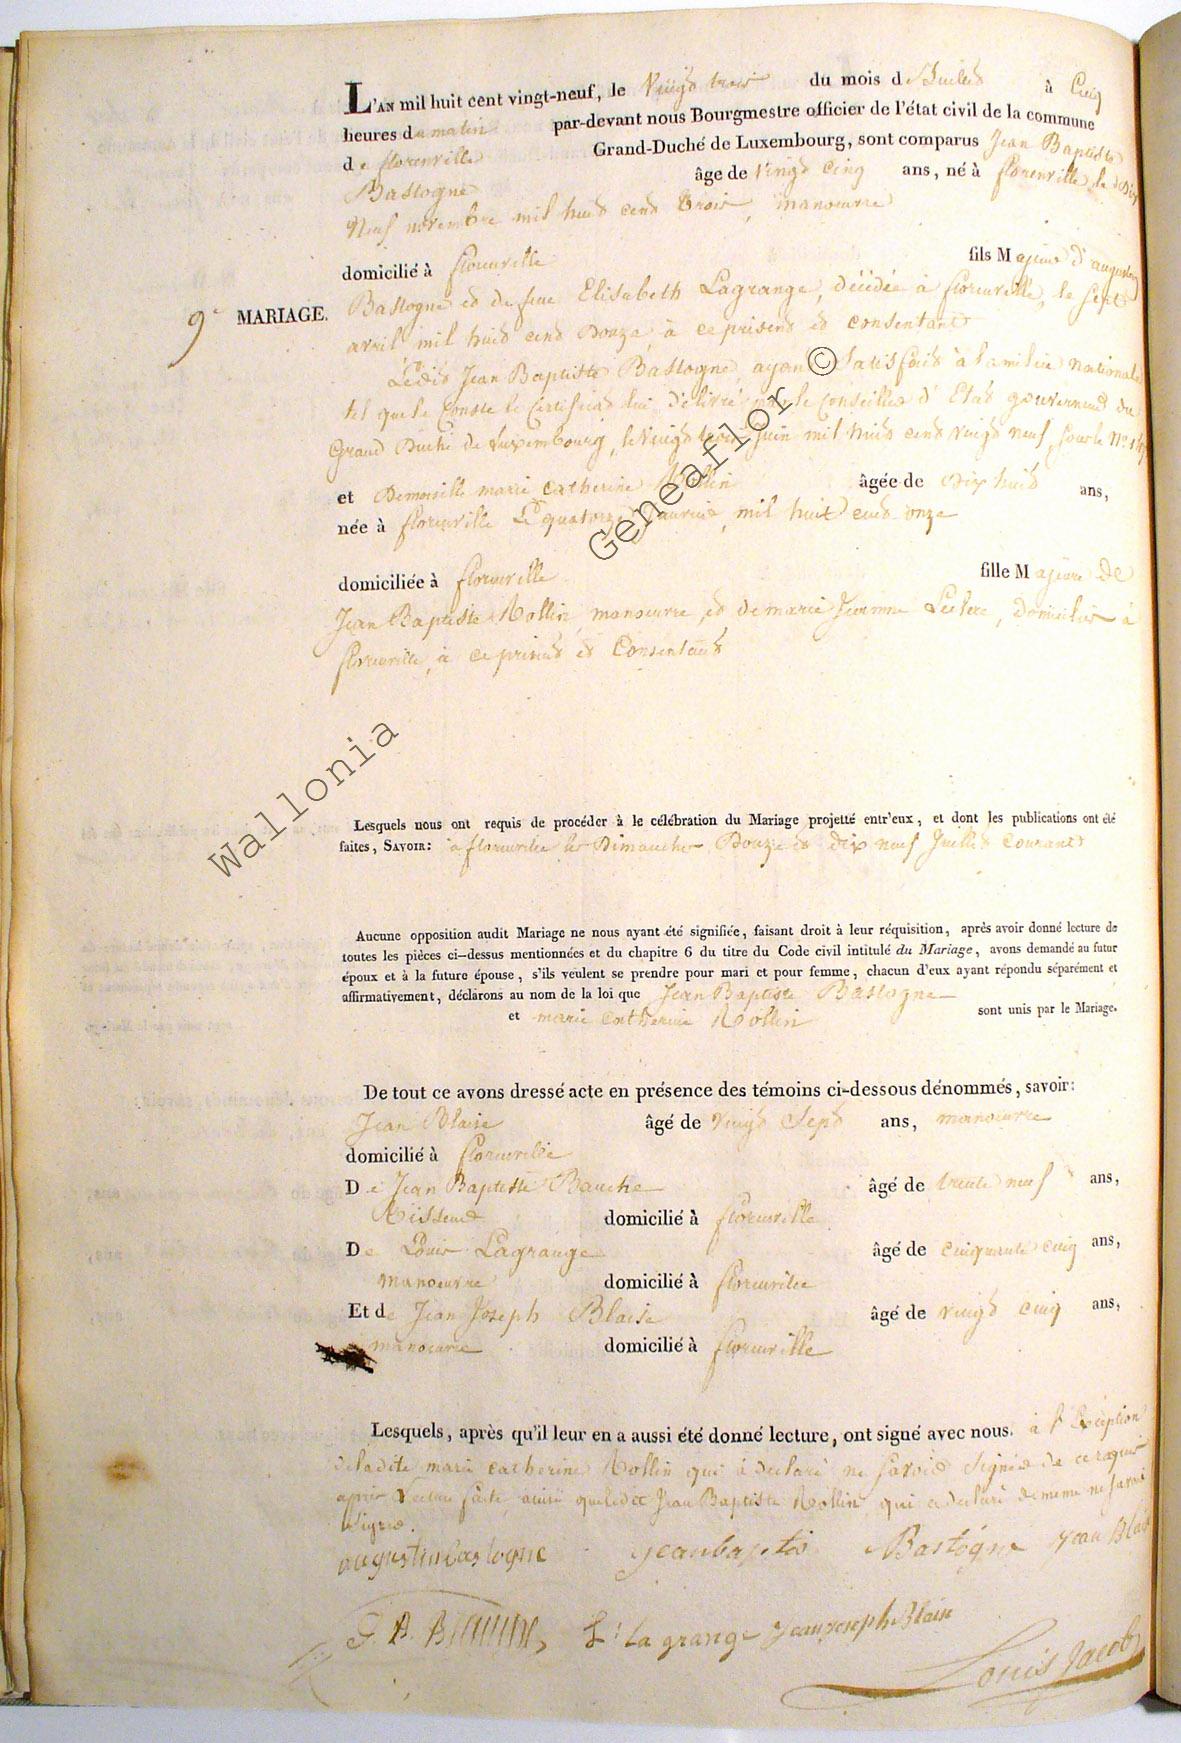 L'an mil huit cent vingt-neuf, le vingt trois du mois de Juillet à Cinq
heures du matin par-devant nous Bourgmestre officier de l'état civil de la commune
de florenville Grand-Duché de Luxembourg, sont comparus Jean Baptiste
Bastogne âge de vingt cinq ans, né à florenville, le Dix
Neuf novembre mil huit cent trois, manoeuvre
domicilié à florenville fils Majeur d'augustin
9e MARIAGE. Bastogne et de feue Elisabeth Lagrange, décédée à florenville, le sept
avril mil huit cent Douze, à ce présent et consentant
Ledit Jean Baptiste Bastogne, ayant satisfait à la milice nationale
tel que le conste le certificat lui délivré par le Conseiller d'Etat gouverneur du
Grand Duché de Luxembourg, le vingt trois juin mil huit cent vingt neuf, sous le No
et Demoiselle marie catherine Rollin âgée de Dix huit ans,
née à florenville Le quatorze Janvier, mil huit cent onze
domiciliée à florenville fille Majeure de
Jean Baptiste Rollin, manoeuvre, et de marie Jeanne Leclere, Domiciliés à
florenville, à ce présents et Consentants
Lesquels nous ont requis de procéder à le célébration du Mariage projetté entr'eux, et dont les publications ont été
faites, Savoir: à florenville les Dimanches Douze et dix neuf Juillet courant
Aucune opposition audit Mariage ne nous ayant été signifiée, faisant droit à leur réquisition, après avoir donné lecture de
toutes les pièces ci-dessus mentionnées et du chapitre 6 du titre du Code civil intitulé du Mariage, avons demandé au futur
époux et à la future épouse, s'ils veulent se prendre pour mari et pour femme, chacun d'eux ayant répondu séparément et
affirmativement, déclarons au nom de la loi que Jean Baptiste Bastogne
et marie catherine Rollin sont unis par le Mariage.
De tout ce avons dressé acte en présence des témoins ci-dessous dénommés, savoir:
Jean Blaise âgé de vingt Sept ans, manoeuvre
domicilié à florenville
De Jean Baptiste Bauche âgé de trente neuf ans,
Tisserand domicilié à florenville
De Louis Lagrange âgé de cinquante cinq ans,
manoeuvre domicilié à florenville
Et de Jean Joseph Blaise âgé de vingt cinq ans,
manoeuvre domicilié à florenville
Lesquels, après qu'il leur en a aussi été donné lecture, ont signé avec nous. à l'Exception
de ladite marie catherine Rollin qui à declaré ne savoir Signer de ce requis
après Lecture faite, ainsi que ledit Jean Baptiste Rollin qui a declaré de meme ne savoir
signer.
augustin bastogne jeanbaptis Bastogne jean Blais
J. B. L: La grange Jeanjoseph Blais
Louis Jacob
Wallonia Geneaflor ©